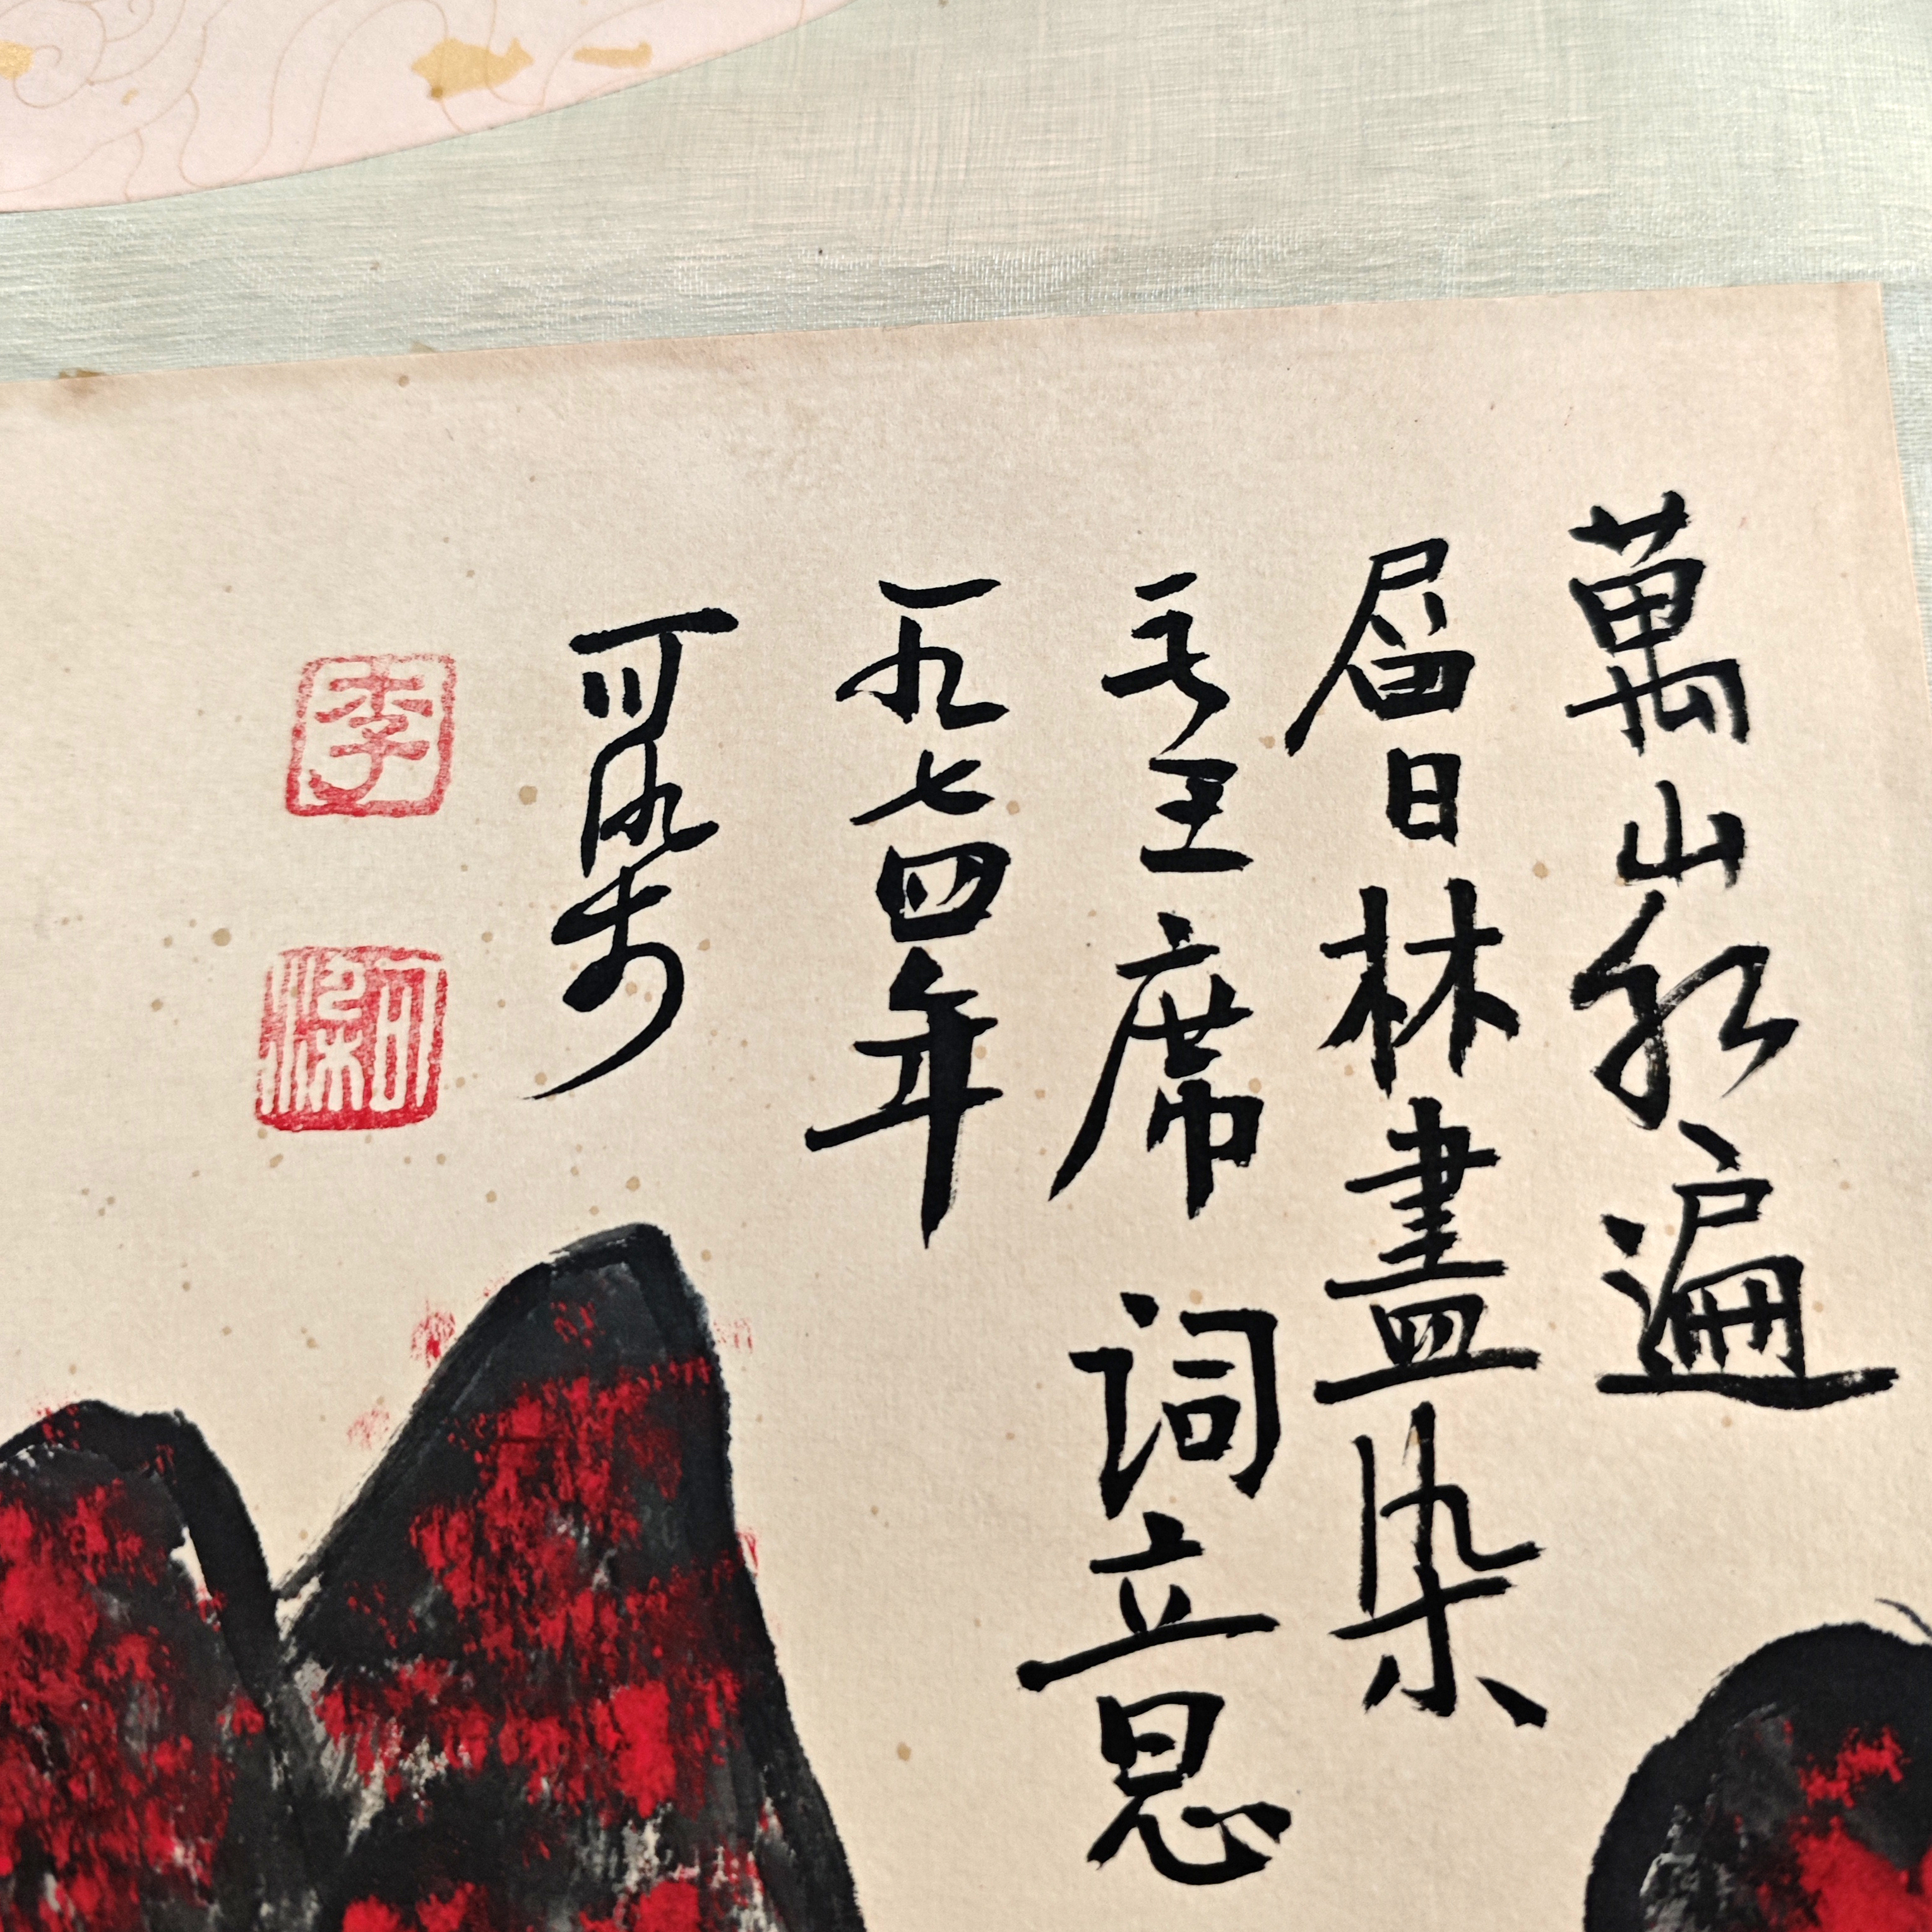 萬山红遍
層林盡染
毛主席词意
一九七四年
可染
李
可染